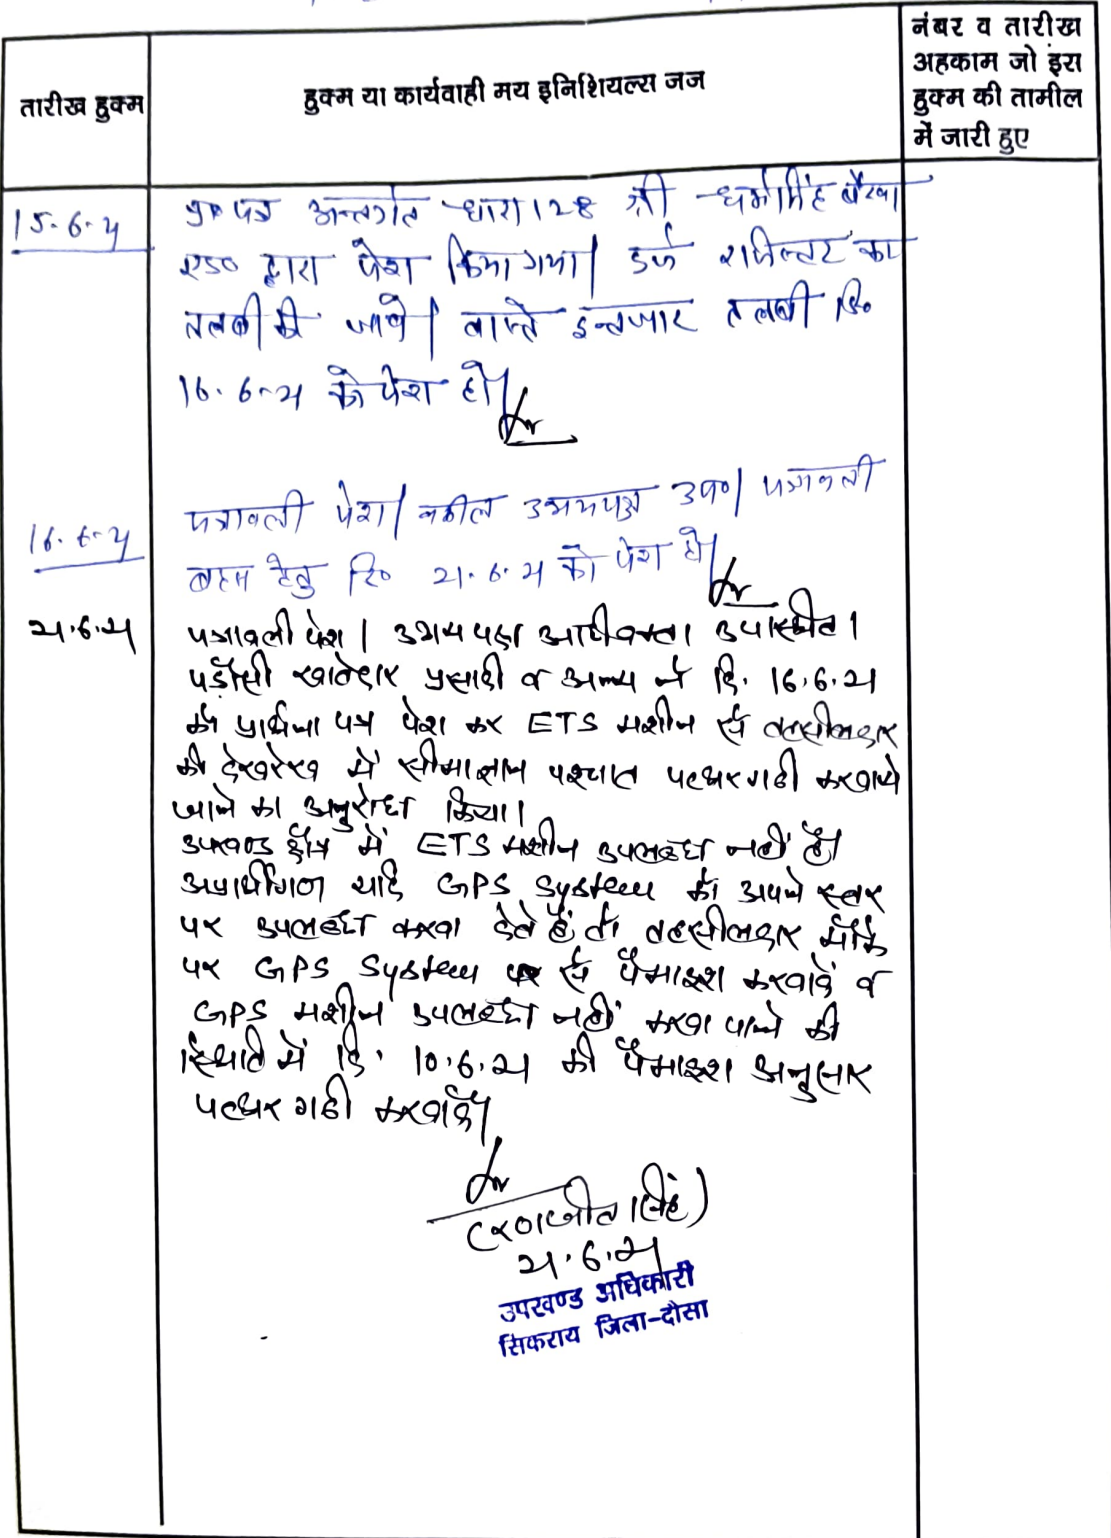 तारीख हुक्म
हुक्म या कार्यवाही मय इनिशियल्स जज
नंबर व तारीख
अहकाम जो इस
हुक्म की तामील
में जारी हुए
15.6.21
प्रा० पत्र अन्तर्गत धारा 128 श्री धर्मसिंह बैरवा
एड० द्वारा पेश किया गया। दर्ज रजिस्टर कर
तलबी की जावे। वास्ते इन्तजार तलबी दि०
16.6.21 को पेश हो।
16.6.21
पत्रावली पेश। वकील उभयपक्ष उप०। पत्रावली
बहस हेतु दि० 21.6.21 को पेश हो।
21.6.21
पत्रावली पेश। उभय पक्ष अधिवक्ता उपस्थित।
पड़ौसी खातेदार प्रसादी व अन्य ने दि. 16.6.21
को प्रार्थना पत्र पेश कर ETS मशीन से तहसीलदार
की देखरेख में सीमाज्ञान पश्चात पत्थरगढी करवाये
जाने का अनुरोध किया।
उपखण्ड क्षेत्र में ETS मशीन उपलब्ध नहीं है।
अप्रार्थीगण यदि GPS System को अपने स्तर
पर उपलब्ध करवा देते हैं तो तहसीलदार मौके
पर GPS System से पैमाइश करवावें व
GPS मशीन उपलब्ध नहीं करवा पाने की
स्थिति में दि. 10.6.21 की पैमाइश अनुसार
पत्थर गढी करवावें।
(रणजीत सिंह)
21.6.21
उपखण्ड अधिकारी
सिकराय जिला-दौसा